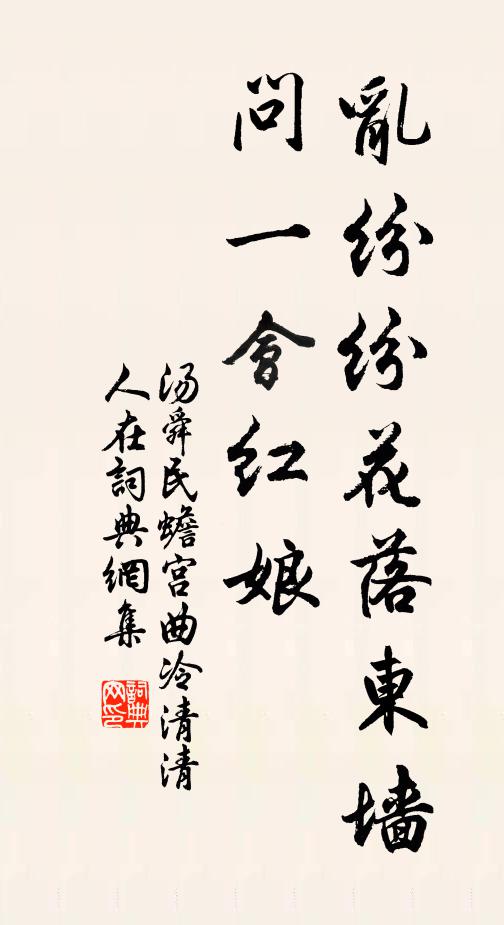 亂紛紛花落東墻
問一會紅娘
汤舜民蟾宫曲冷清清
人在詞典網集
詞典网印